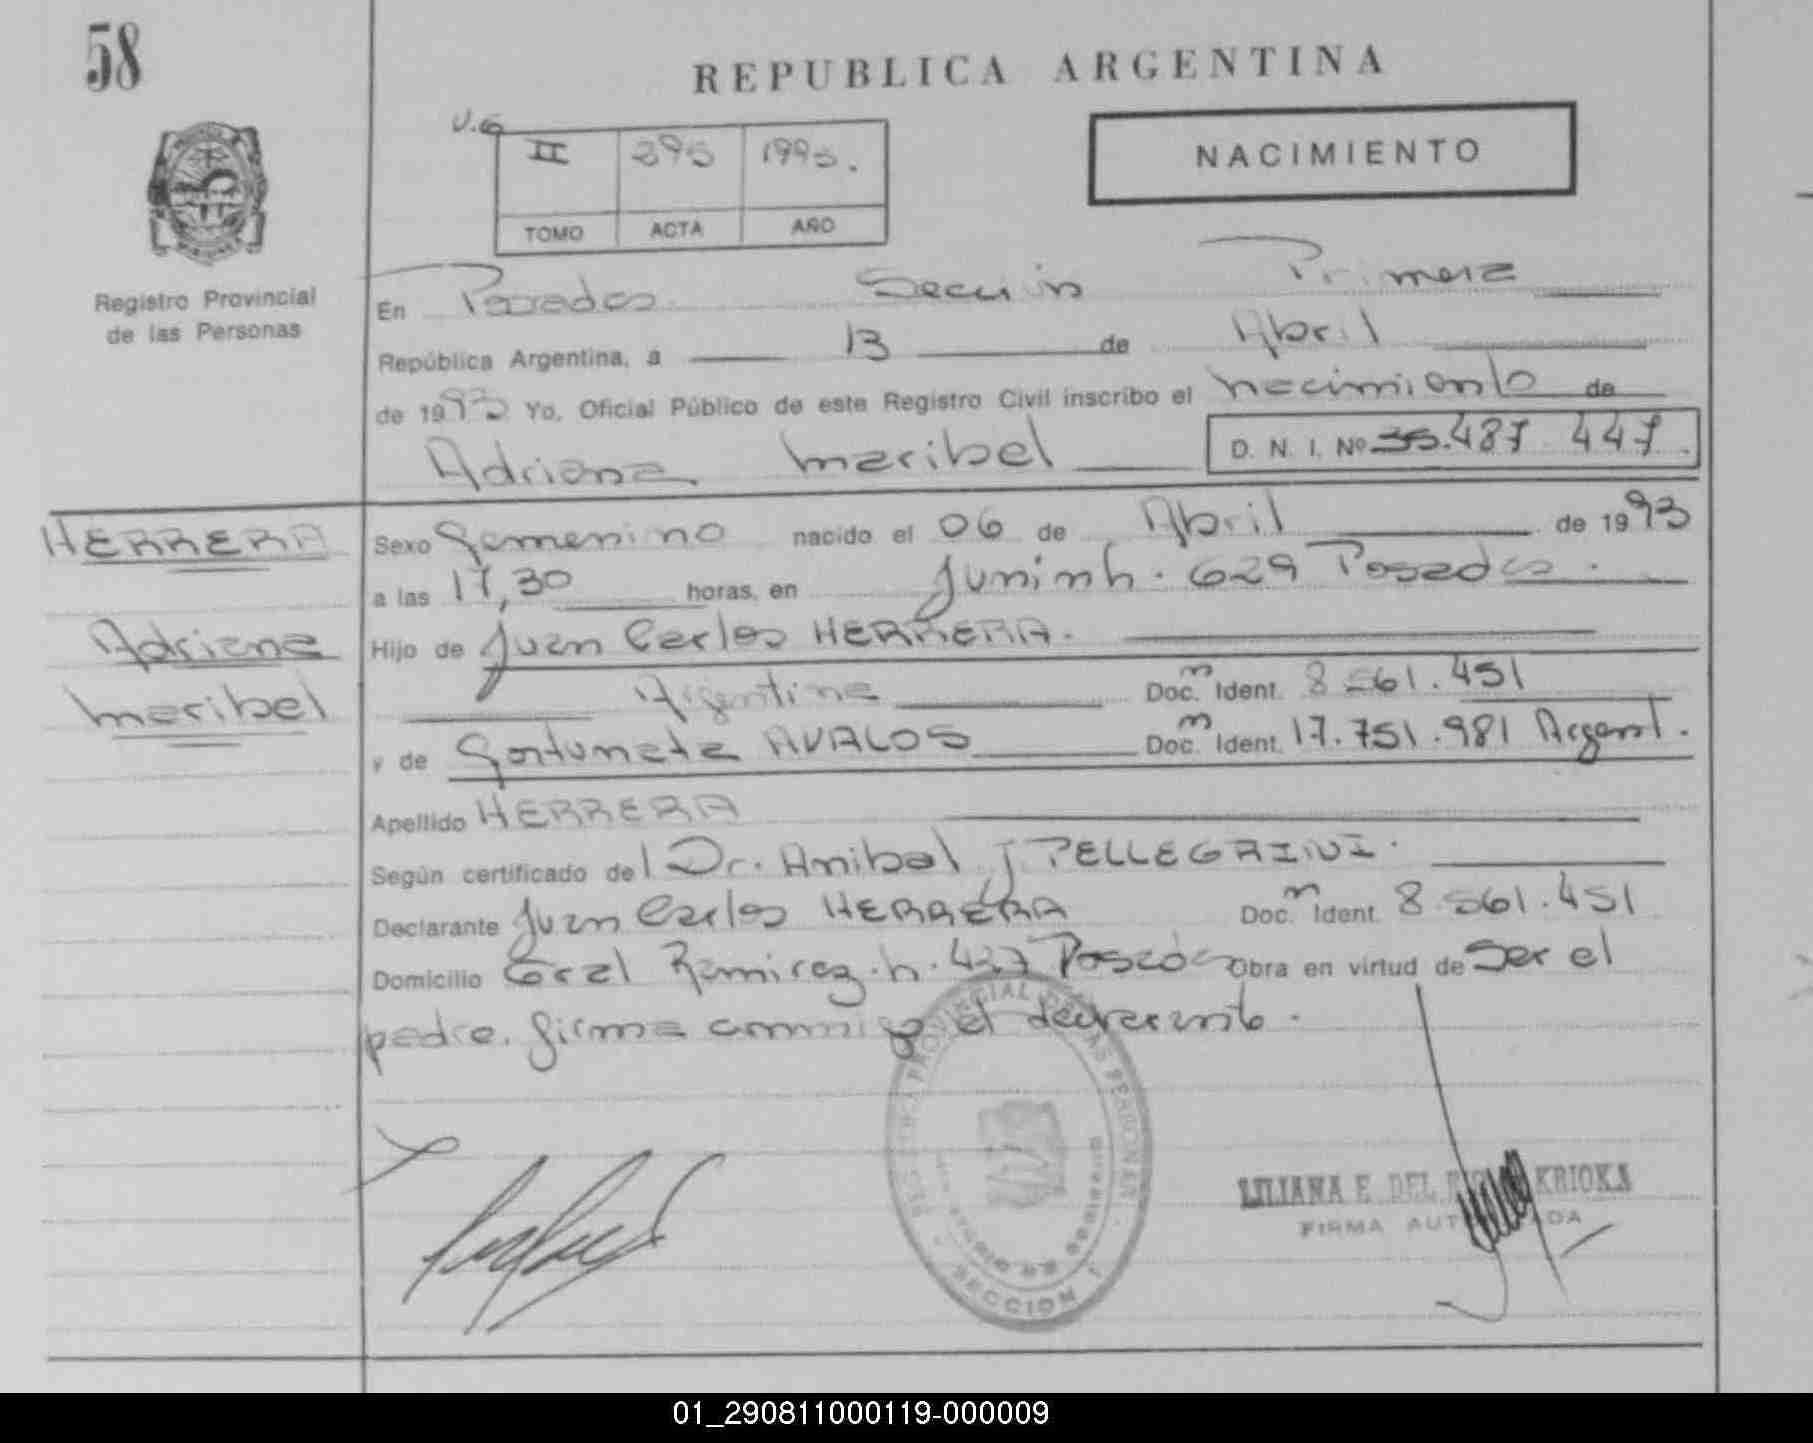 58
REPUBLICA ARGENTINA
V.G
II 395 1993.
TOMO ACTA AÑO
NACIMIENTO
Registro Provincial
de las Personas
En Posadas Sección Primera
República Argentina, a 13 de Abril
de 1993 Yo, Oficial Público de este Registro Civil inscribo el nacimiento de
Adriana Maribel D. N. I. Nº 35.487.447.
HERRERA
Adriana
Maribel
Sexo Femenino nacido el 06 de Abril de 1993
a las 17,30 horas, en Junin n. 629 Posadas.
Hijo de Juan Carlos HERRERA.
Argentina Doc. m Ident. 8.561.451
y de Fortunata AVALOS Doc. m Ident. 17.751.981 Argent.
Apellido HERRERA
Según certificado del Dr. Anibal J PELLEGRINI.
Declarante Juan Carlos HERRERA Doc. m Ident. 8.561.451
Domicilio Gral Ramirez n. 427 Posadas Obra en virtud de Ser el
padre. firma conmigo el
SECCION 1
LILIANA E DEL KRIOKA
FIRMA AUTORIZADA
01_290811000119-000009